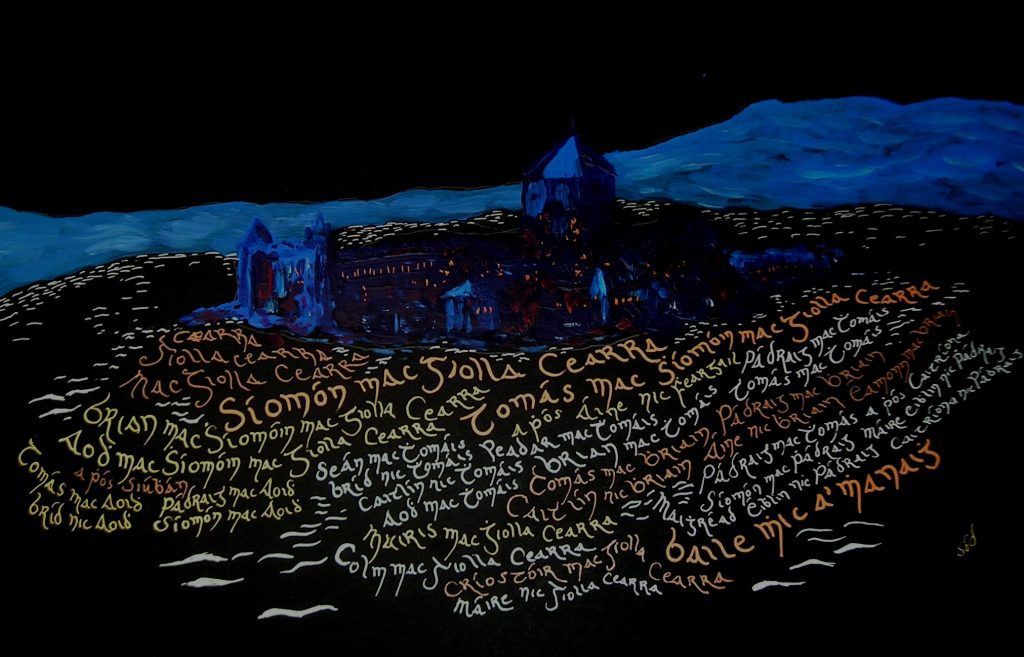 Cearra
Giolla Cearra
Mac Giolla Cearra
Síomón mac Giolla Cearra
Tomás mac Síomón mac Giolla Cearra
Brian mac Síomóin mac Giolla Cearra
a pós Áine nic Fearġail
Aoḋ mac Síomóin mac Giolla Cearra
Tomás mac Aoiḋ
a pós Siúbán
Pádraig mac Aoiḋ
Bríd nic Aoiḋ
Síomón mac Aoiḋ
Seán mac Tomáis
Peadar mac Tomáis
Tomás mac Tomáis
Pádraig mac Tomáis
Bríd nic Tomáis
Brian mac Tomáis
Caitlín nic Tomáis
Aoḋ mac Tomáis
Tomás mac Briain
Pádraig mac Briain
Éamonn mac Briain
Caitlín nic Briain
Áine nic Briain
Pádraig mac Tomás a pós Caitríona
Síomón mac Pádraig
Máire Eiblín nic Pádraig
Maitréad Eiblín nic Pádraig
Caitríona
Muiris mac Giolla Cearra
Colm mac Giolla Cearra
Críostóir mac Giolla Cearra
Máire nic Giolla Cearra
Baile Mic a' Manaig
SÓD